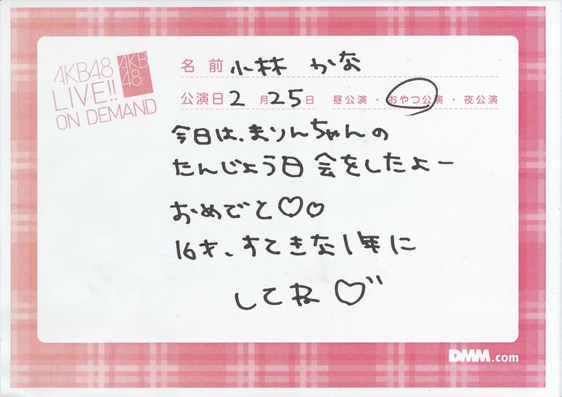 AKB48
LIVE!!
ON DEMAND
AKB
48
名前 小林 かな
公演日 2月25日 昼公演・おやつ公演・夜公演
今日は、まりんちゃんの
たんじょう日会をしたよー
おめでと♡♡
16才、すてきな1年に
してね♡
DMM.com